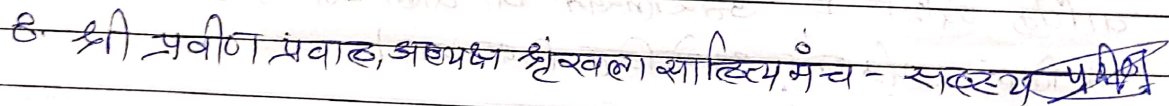 8. श्री प्रवीण प्रवाह, अध्यक्ष श्रृंखला साहित्य मंच - सदस्य